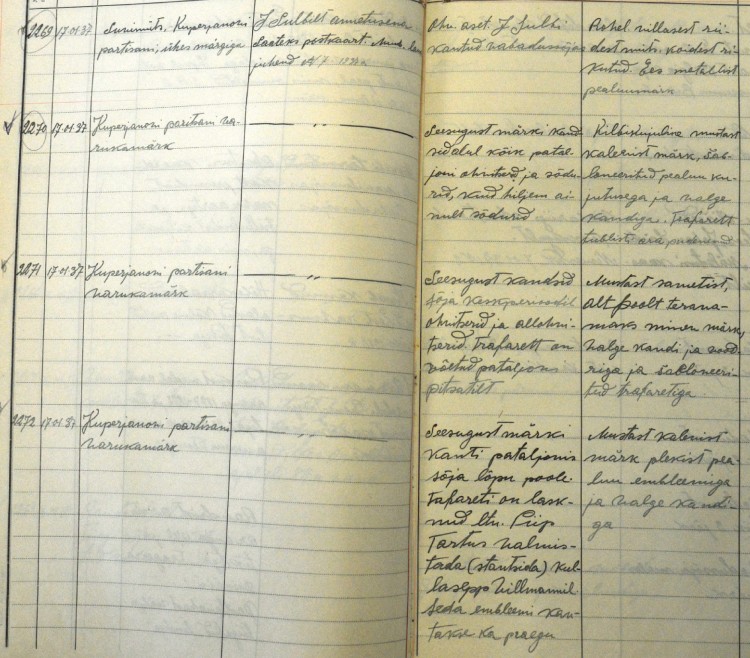 2269 17.01.37 Surimüts, Kuperjanovi
partisani, ühes märgiga
J. Sulbilt annetusena
Saateks postkaart.
juhend № 7
Ohv. aset. J. Sulbi
kantud vabadussõjas
Rohel. villasest rii-
dest müts, koidest ri-
kutud. Ees metallist
pealuumärk
2270 17.01.37 Kuperjanovi partisani va-
rukamärk
— " —
Seesugust märki kand-
sid alul kõik patal-
joni ohvitserid ja sõdu-
rid, kuid hiljem ai-
nult sõdurid
Kilbikujuline mustast
kalevist märk, šab-
loneeritud pealuu ku-
jutusega ja valge
kandiga. Trafarett
tublisti ära pudenend
2271 17.01.37 Kuperjanovi partisani
varukamärk
— " —
Seesugust kandsid
sõja keskperioodil
ohvitserid ja allohvi-
tserid. Trafarett on
võetud pataljoni
pitsatilt
Mustast sametist,
alt poolt terava-
maks minev märk,
valge kandi ja vood-
riga ja šabloneeri-
tud trafaretiga.
2272 17.01.37 Kuperjanovi partisani
varukamärk
— " —
Seesugust märki
kanti pataljonis
sõja lõpu poole.
Trafareti on lask-
nud ltn. Piip
Tartus valmis-
tada (stantsida) kul-
lasepp Villmannil.
Seda embleemi kan-
takse ka praegu
Mustast kalevist
märk plekist pea-
luu embleemiga
ja valge kandi-
ga